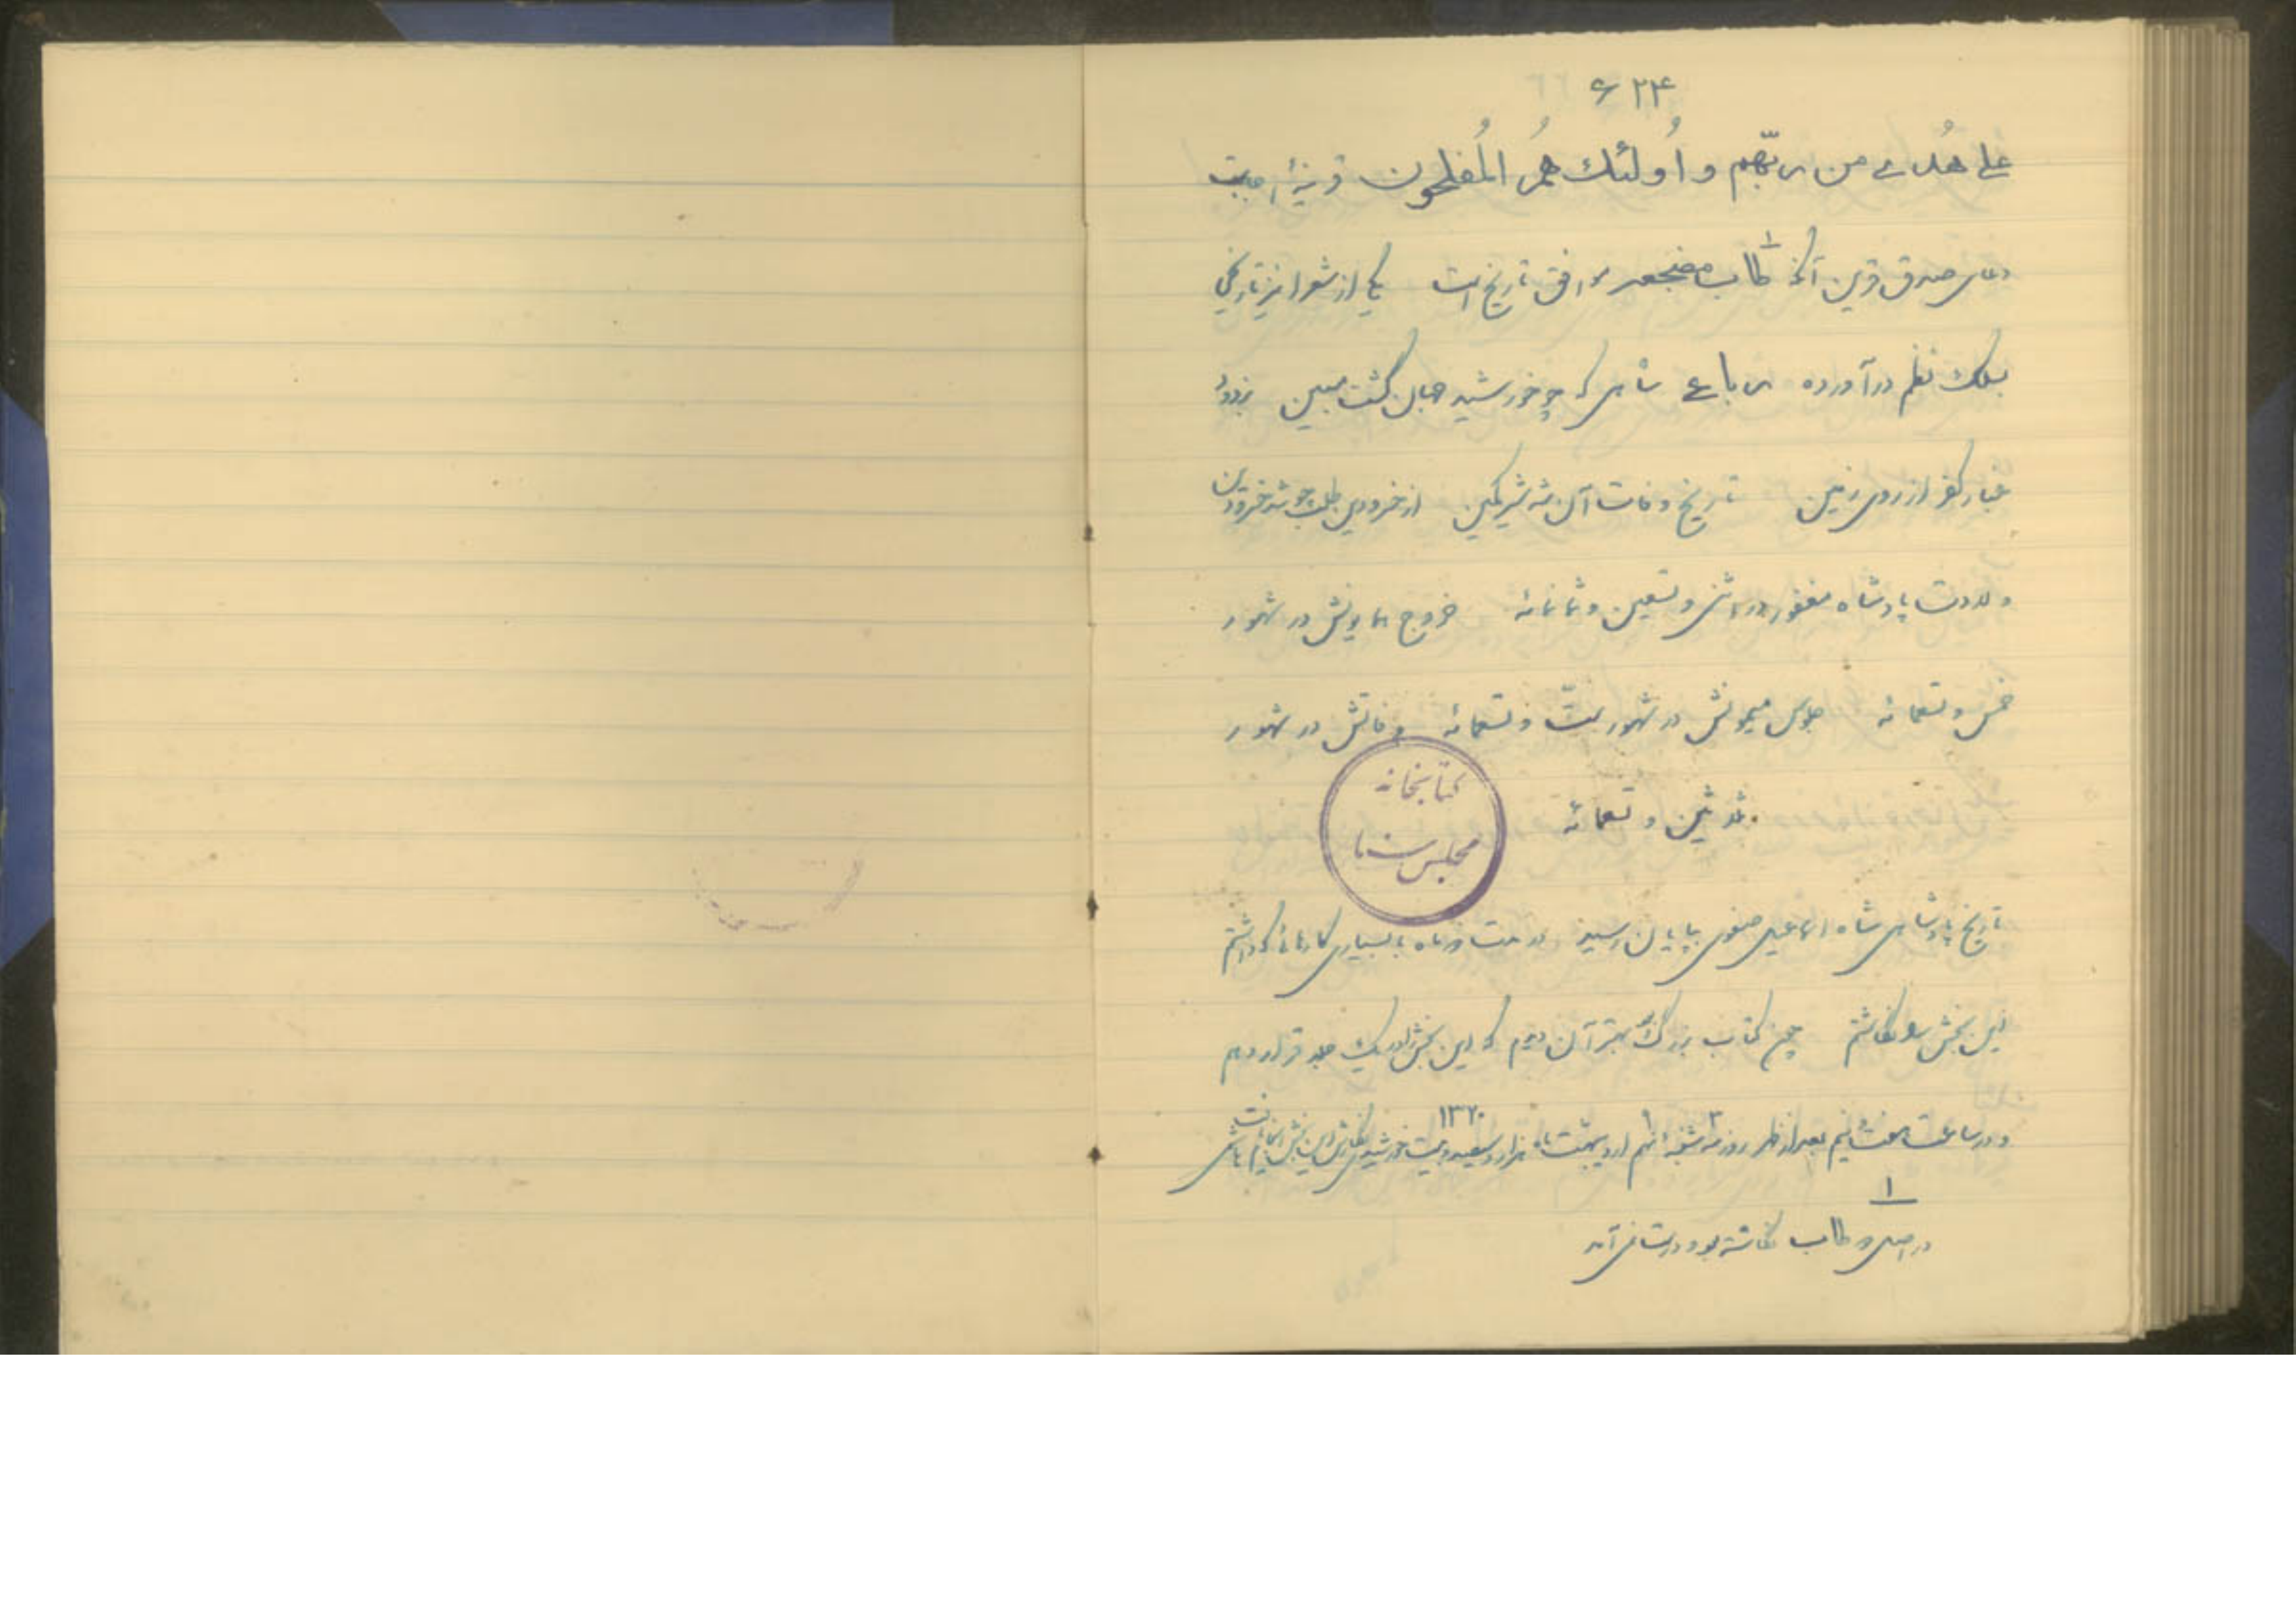 ۶۲۴
علی هُدی من ربّهم و اُولئك هُمُ المُفلحون قرینهٔ اجابت
دعای صدق قرین آنکه طاب مضجعه موافق تاریخ است یکی از شعرا نیز تاریخی
بسلك نظم درآورده رباعی شاهی که چو خورشید جهان گشت مبین بزدود
غبار کفر از روی زمین تاریخ وفات آن شه شیرکمین از خسرو دین طلب چو شد خسرو دین
ولادت پادشاه مغفور در اثنی و تسعین و ثمانمائه خروج همایونش در شهور
خمس و تسعمائه جلوس میمونش در شهور ستّ و تسعمائه وفاتش در شهور
ثلاثین و تسعمائه
کتابخانه
مجلس سنا
تاریخ پادشاهی شاه اسماعیل صفوی بپایان رسید در مدت دو ماه با بسیاری کارهائی که داشتم
این بخش را نگاشتم چون کتاب بزرگ بهتر آن دیدم که این بخش را در یك جلد قرار دهم
و در ساعت هفت و نیم بعد از ظهر روز سه شنبه ۳ نهم اردیبهشت ماه هزار و سیصد و بیست خورشیدی ۱۳۲۰ نگارش این بخش انجام یافت
۱
در اصل و طاب نگاشته بود درست نمی‌آمد